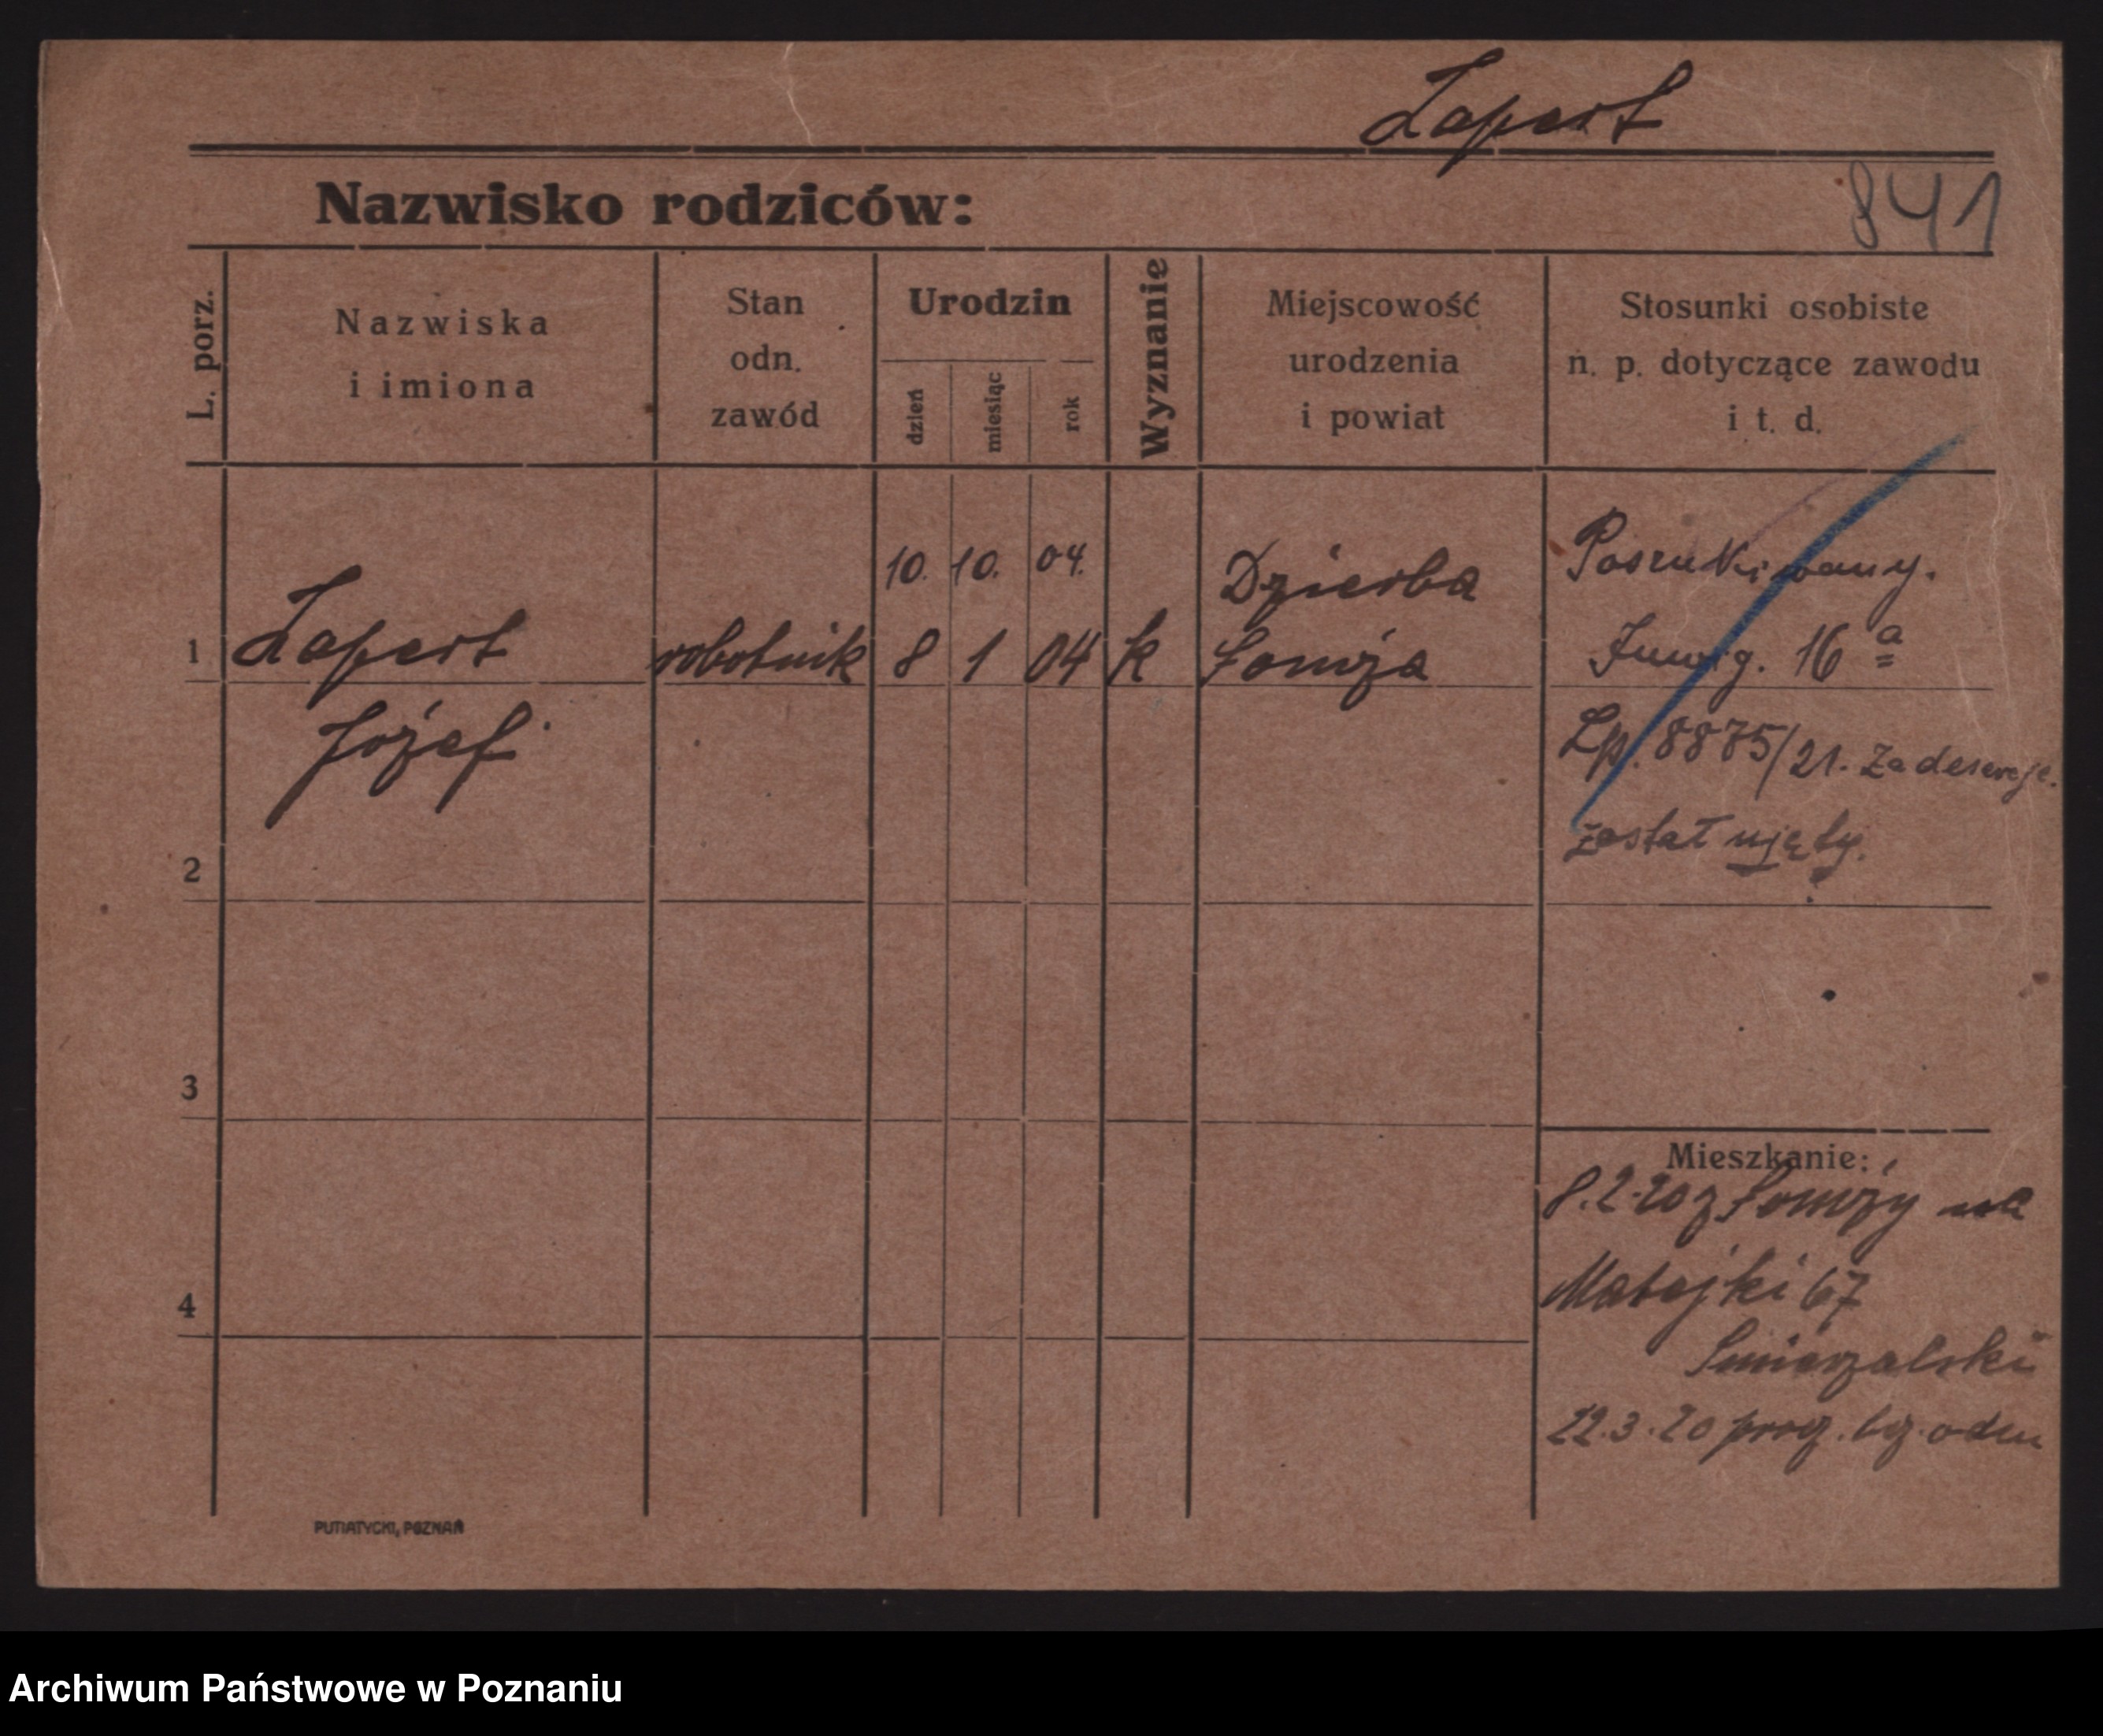 Łapert
Nazwisko rodziców:
841
L. porz.
Nazwiska
i imiona
Stan
odn.
zawód
Urodzin
dzień
miesiąc
rok
Wyznanie
Miejscowość
urodzenia
i powiat
Stosunki osobiste
n. p. dotyczące zawodu
i t. d.
10. 10. 04. Dzierba Poszukiwany.
1 Łapert robotnik 8 1 04 k Łomża 16 a
Józef
Lp. 8875/21. Za desercję.
został ujęty.
2
3
4
Mieszkanie:
8.2.20 z Łomży na
Matejki 67
22.3.20 bz. odm
PUTIATYCKI, POZNAŃ
Archiwum Państwowe w Poznaniu